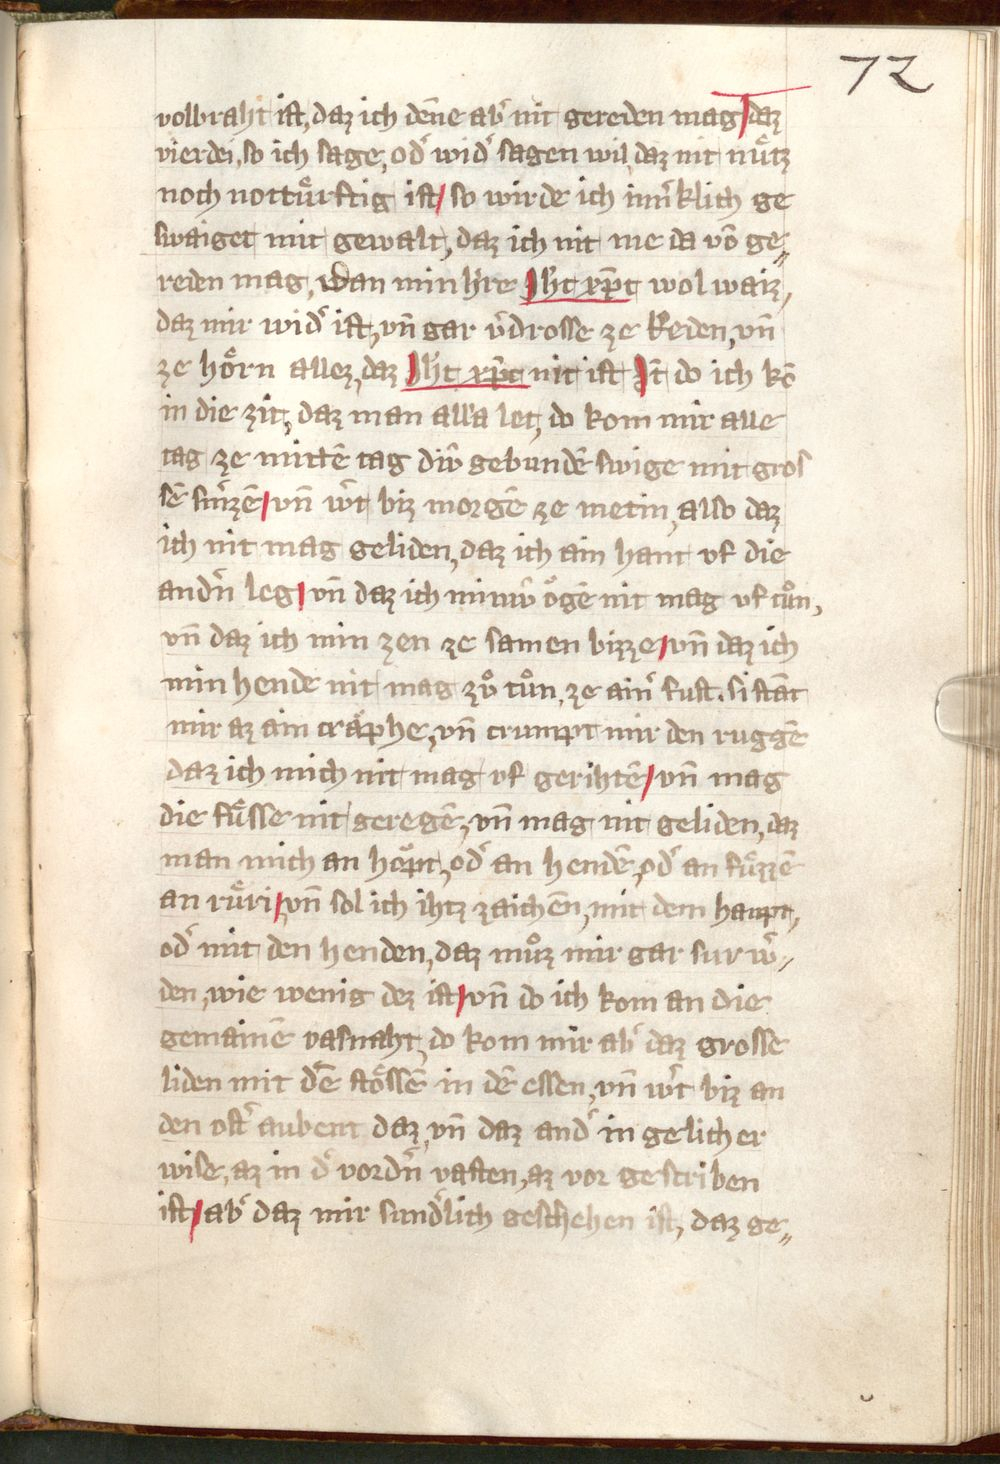 72
volbraht ist, daz ich dēne ab͛ nit gereden mag daz
vierdei, so ich sage, od͛ wid͛ sagen wil, daz nit nuͤtz
noch nottuͤrftig ist / so wirde ich im͛klich ge
swaiget mit gewalt, daz ich nit me da vō ge„
reden mag, wan min h͛re Jhc xp̄c wol waiz,
daz mir wid͛ ist, vn̄ gar v͛drosse ze Reden, vn̄
ze hoͤrn allez, daz Jhc xp̄c nit ist Jt̄ do ich kō
in die zit, daz man all'a let, do kom mir alle
tag ze mittē tag diu gebundē swige mit gros
sē sm͛zē / vn̄ w͛t biz morgē ze metin, also daz
ich nit mag geliden, daz ich ain hant vf die
andn̄ leg / vn̄ daz ich miniu oͮgē nit mag vf tuͦn,
vn̄ daz ich min zen ze samen bizze / vn̄ daz ich
min hende nit mag zuͦ tuͦn, ze ain͛ fust. si stāt
mir az ain craͤphe, vn̄ crumpt mir den ruggē
daz ich mich nit mag vf gerihtē / vn̄ mag
die fuͤsse nit geregē, vn̄ mag nit geliden, daz
man mich an hoͮpt, od͛ an hendē, od͛ an fuͤzzē
an ruͤri / vn̄ sol ich ihtz zaichēn, mit dem haupt,
od͛ mit den henden, daz muͦz mir gar sur w͛„
den, wie wenig dez ist / vn̄ do ich kom an die
gemainē vasnaht, do kom mir ab͛ daz grosse
liden mit dē stoͤssē in dē essen, vn̄ w͛t biz an
den ost͛ aubent daz, vn̄ daz and͛ in gelicher
wise, az in d͛ vord͛n vasten, az vor gescriben
ist / ab͛ daz mir sund͛lich geschehen ist, daz ge„